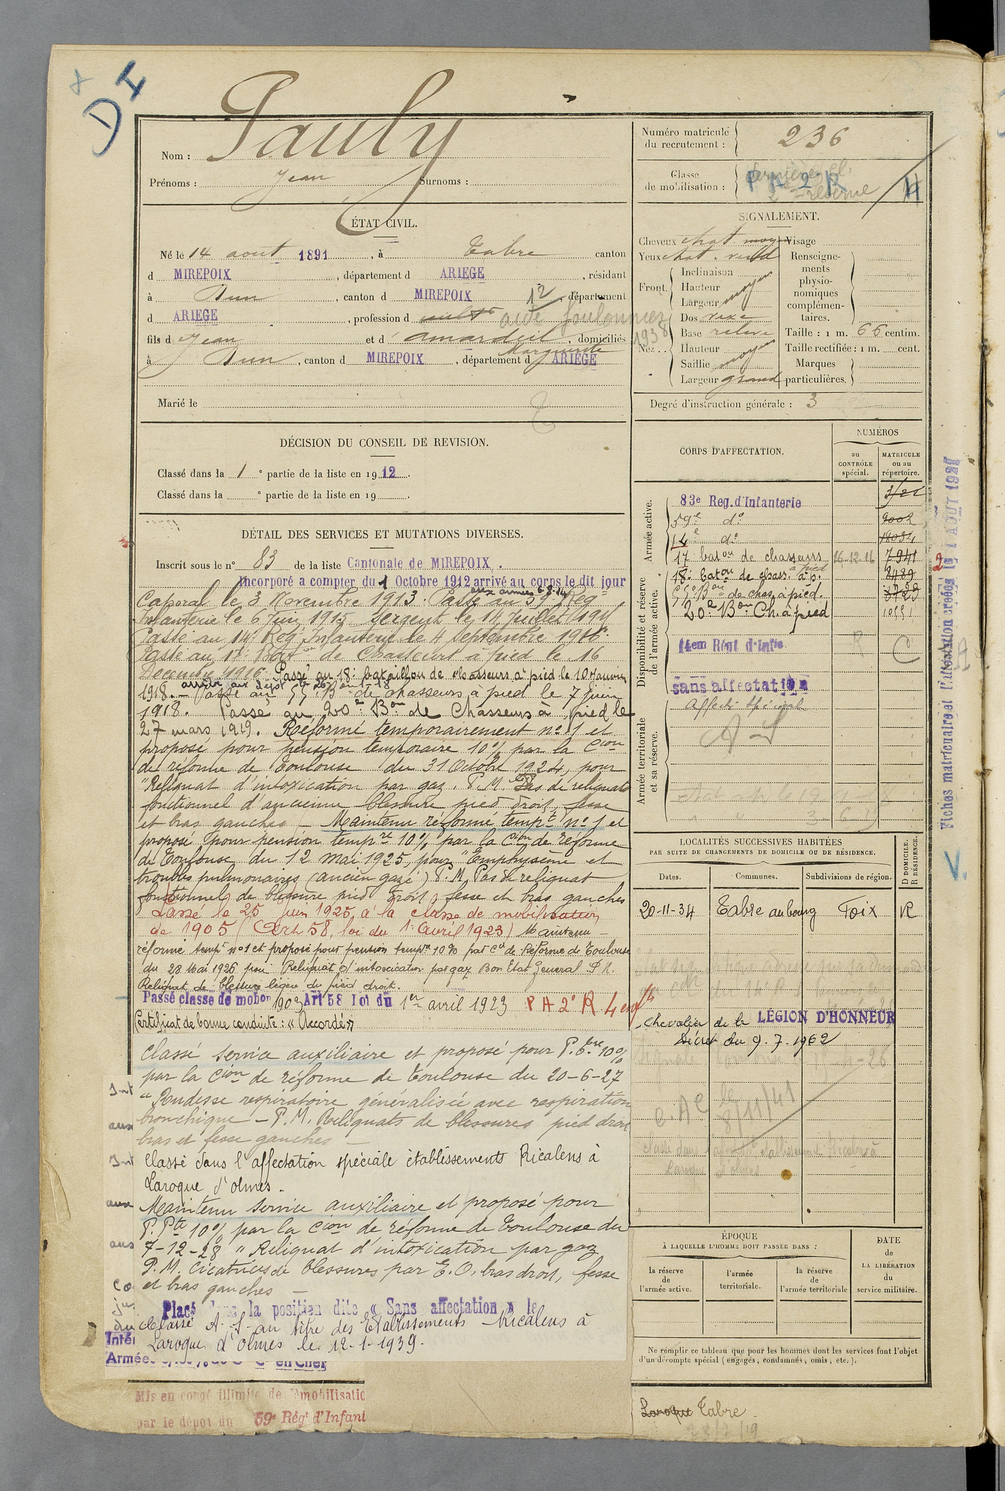 DI
Nom : Pauly
Prénoms : Jean Surnoms :
ÉTAT CIVIL.
Né le 14 aout 1891, à Tabre canton
d MIREPOIX, département d ARIEGE, résidant
à Dun, canton d MIREPOIX, département
d ARIEGE, profession d aide foulonnier
1938
fils d Jean et d Amardeil Marguerite, domiciliés
à Dun, canton d MIREPOIX, département d ARIEGE
Marié le
DÉCISION DU CONSEIL DE REVISION.
Classé dans la 1 e partie de la liste en 1912.
Classé dans la e partie de la liste en 19 .
DÉTAIL DES SERVICES ET MUTATIONS DIVERSES.
Inscrit sous le n° 83 de la liste Cantonale de MIREPOIX.
Incorporé a compter du 1 Octobre 1912 arrivé au corps le dit jour
Caporal le 3 Novembre 1913. Passé au 59e Reg
Infanterie le 6 Juin 1914. Sergent le 14 juillet 1914
Passé au 14e Reg Infanterie le 4 Septembre 1916.
Passé au 17e Baton de Chasseurs à pied le 16
Décembre 1916. Passé au 18e bataillon de chasseurs à pied le 10 Janvier
1918. Passé au 55e Bon de chasseurs à pied le 7 juin
1918. Passé au 20e Bon de Chasseurs à pied le
27 mars 1919. Réformé temporairement n° 1 et
proposé pour pension temporaire 10% par la Cion
de réforme de Toulouse du 31 Octobre 1924, pour
"Reliquat d'intoxication par gaz. P.M. Pas de reliquat
fonctionnel d'ancienne blessure pied droit, fesse
et bras gauches – Maintenu réformé tempre n° 1 et
proposé pour pension tempre 10% par la Cion de réforme
de Toulouse du 12 Mai 1925, pour "Emphysème et
troubles pulmonaires (ancien gazé) P.M. Pas de reliquat
fonctionnel de blessure pied droit, fesse et bras gauches
Passé le 25 juin 1925, à la classe de mobilisation
de 1905 (Art 58, loi du 1er avril 1923) Maintenu
réformé tempre n° 1 et proposé pour pension tempre 10% par Con de Réforme de Toulouse
du 28 Mai 1926 pour Reliquat d'intoxication par gaz Bon Etat Général P.M.
Reliquat de blessure légère du pied droit.
Passé classe de mobon 1903 Art 58 loi du 1er avril 1923 P A 2° R 4 enfts
Certificat de bonne conduite : "Accordé"
Classé service auxiliaire et proposé pour P. 10%
par la Cion de réforme de Toulouse du 20-6-27
"Rudesse respiratoire généralisée avec respiration
bronchique – P.M. Reliquats de blessures pied droit
bras et fesse gauches –
Classé dans l'affectation spéciale établissements Ricalens à
Laroque d'Olmes.
Maintenu service auxiliaire et proposé pour
P. Pte 10% par la Cion de réforme de Toulouse du
7-12-28 " Reliquat d'intoxication par gaz
P.M. Cicatrices de blessures par E.O. bras droit, fesse
et bras gauches –
Placé dans la position dite « Sans affectation » le
Classé A.S. au titre des Etablissements Ricalens à
Laroque d'Olmes le 12-1-1939.
Mis en congé illimité de démobilisatio
par le dépôt du 59e Rég d'Infant
Numéro matricule du recrutement : 236
Classe de mobilisation : P A 2 R
SIGNALEMENT.
Cheveux chat moy Visage
Yeux chat.
Renseignements physionomiques complémentaires.
Front. Inclinaison
Hauteur moyen
Largeur
Nez. Dos vexe
Base relevé
Hauteur
Saillie moyen
Largeur grand
Taille : 1 m. 66 centim.
Taille rectifiée : 1 m. cent.
Marques particulières.
Degré d'instruction générale : 3
CORPS D'AFFECTATION.
NUMÉROS
au CONTRÔLE spécial.
MATRICULE ou au répertoire.
Armée active.
83e Reg. d'Infanterie
59e do 9002
14e do
17 baton de chasseurs à pied 16-12-16 7941
18e Baton de chas. à p. 2489
55e Bon de chas à pied.
20e Bon Ch. à pied
Disponibilité et réserve de l'armée active.
14em Rént d'Infie
sans affectation
Affecté Spécial
A S
Armée territoriale et sa réserve.
LOCALITÉS SUCCESSIVES HABITÉES
PAR SUITE DE CHANGEMENTS DE DOMICILE OU DE RÉSIDENCE.
Dates. Communes. Subdivisions de région. D DOMICILE. R RÉSIDENCE.
20-11-34 Tabre au bourg Foix R
Chevalier de la LÉGION D'HONNEUR
Décret du 9.7.1962
8/11/41
ÉPOQUE
À LAQUELLE L'HOMME DOIT PASSER DANS :
DATE DE LA LIBÉRATION du service militaire.
la réserve de l'armée active.
l'armée territoriale.
la réserve de l'armée territoriale
Ne remplir ce tableau que pour les hommes dont les services font l'objet
d'un décompte spécial (engagés, condamnés, omis, etc.).
Laroque Tabre